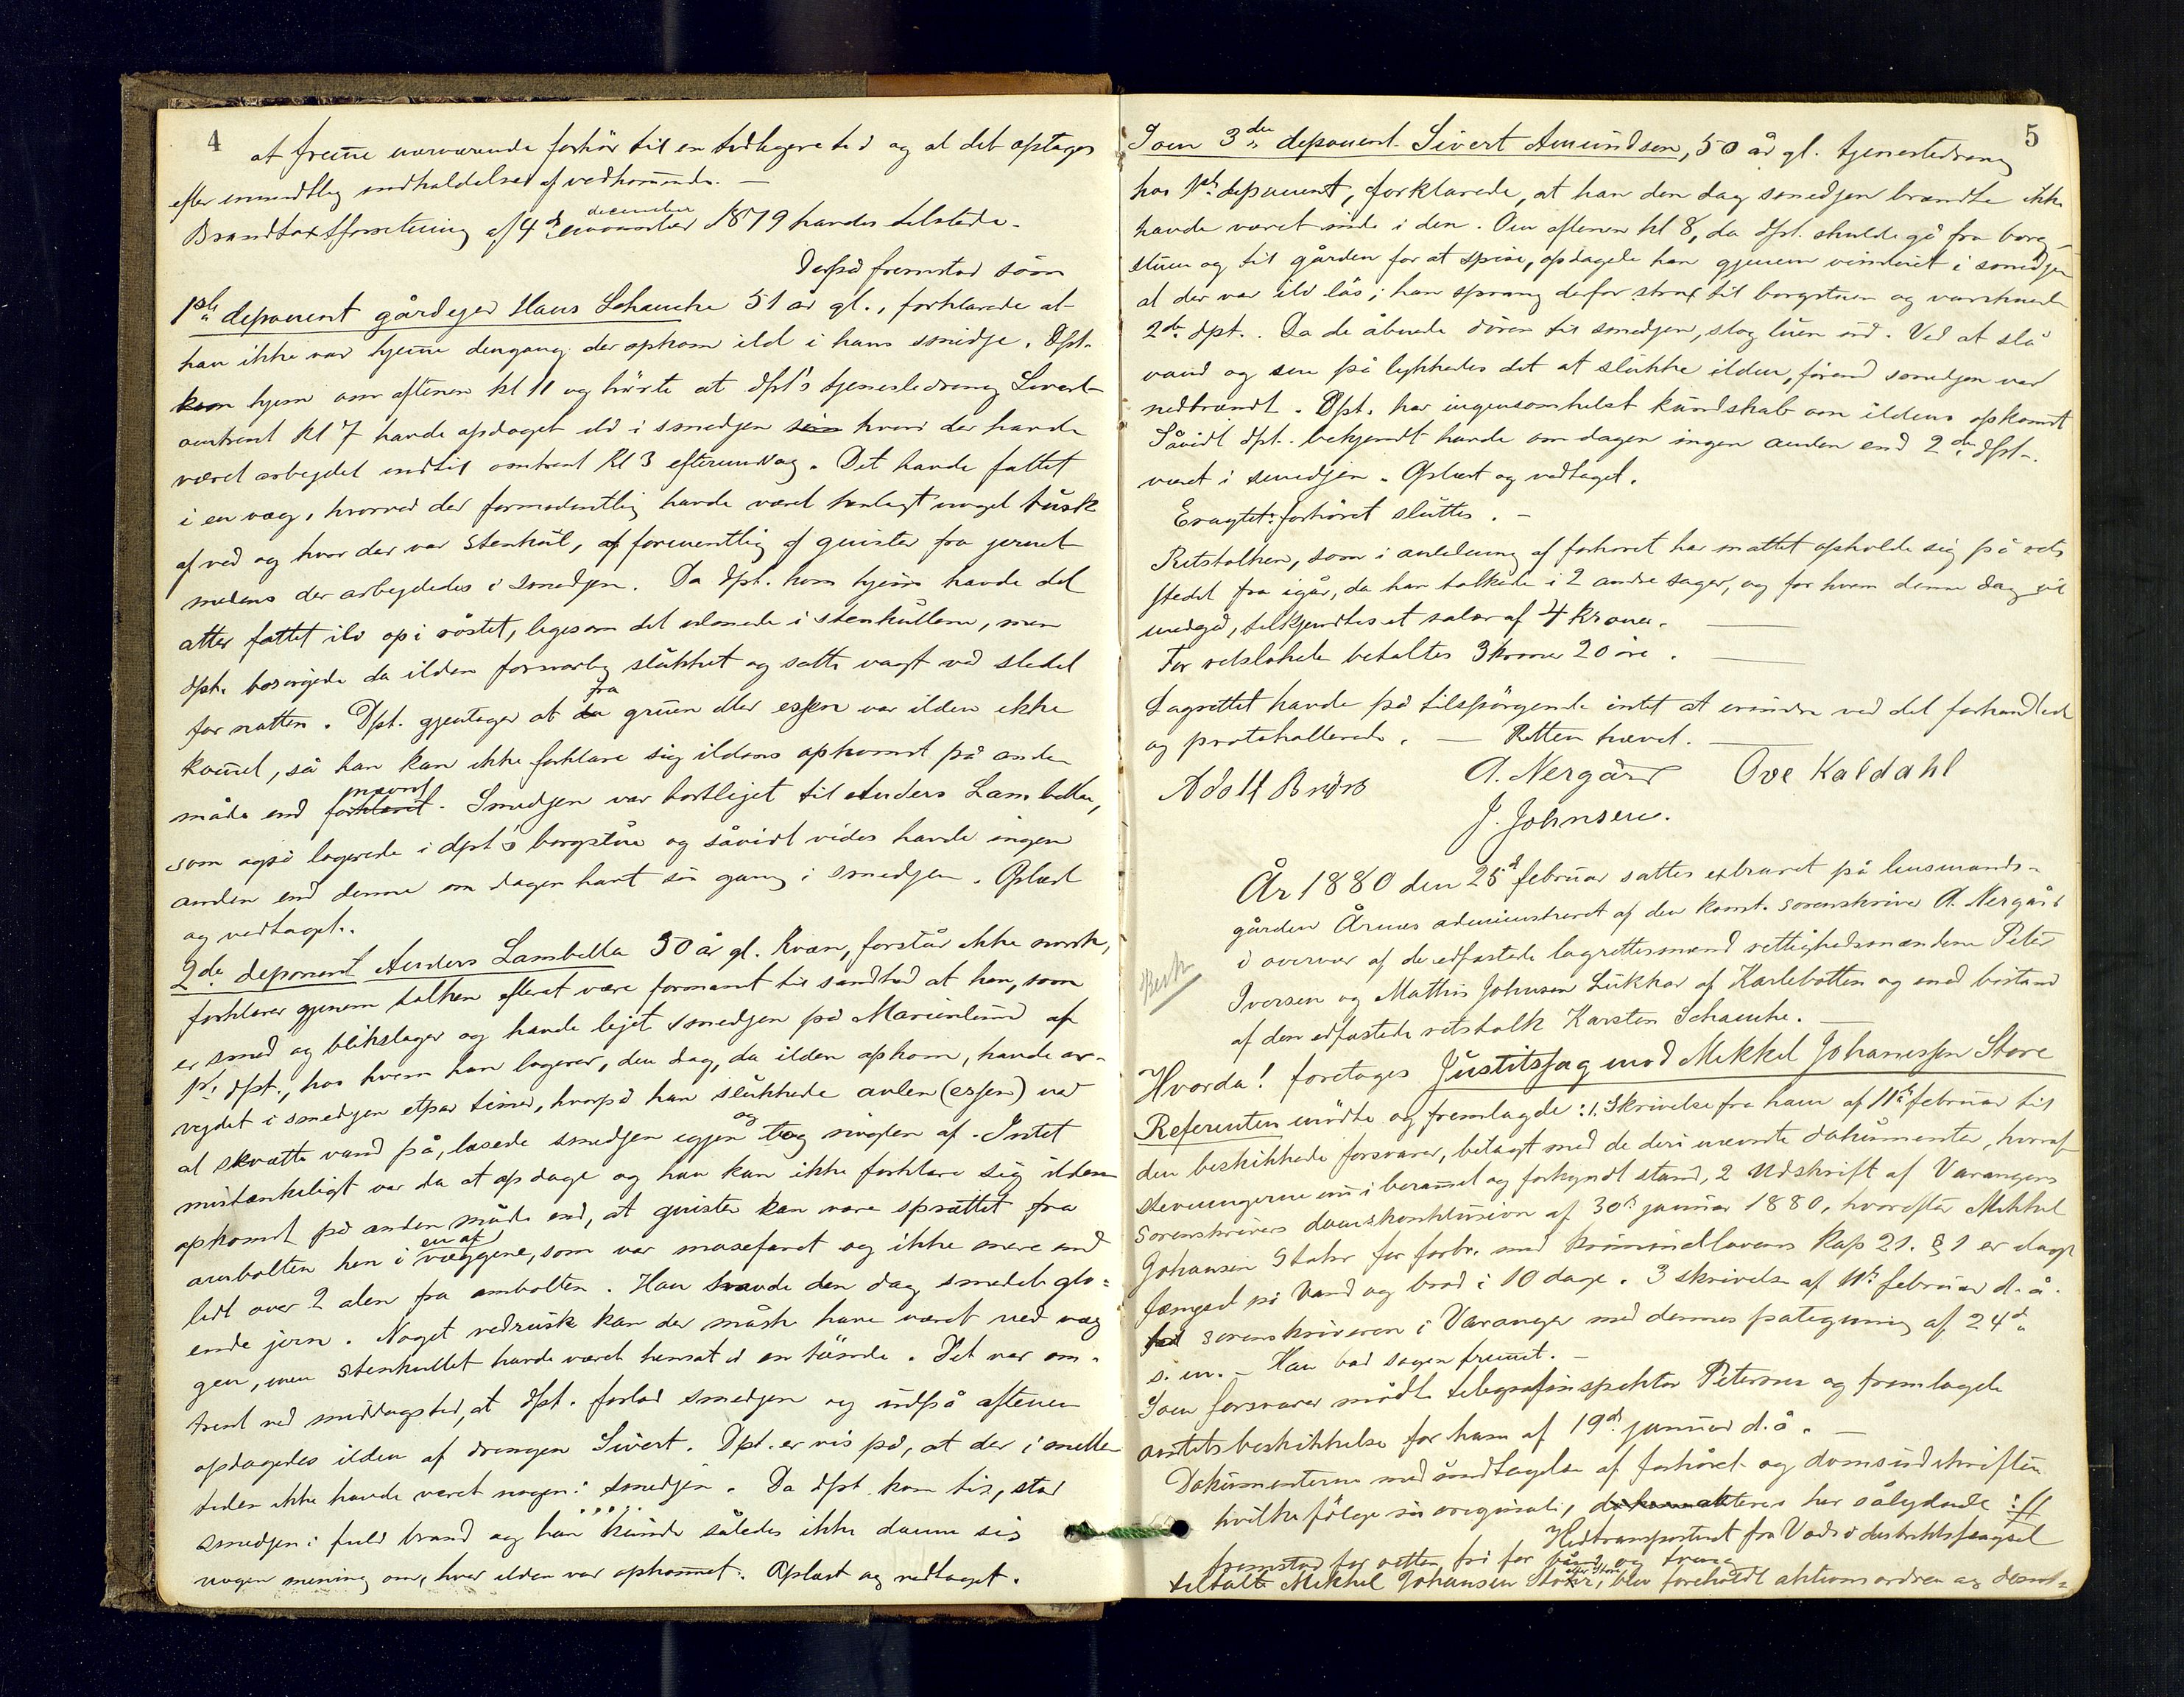 4
at fremme nærværende forhør til en tidligere tid og at det optages
efter mundtlig indkaldelse af vedkommende. —
december
Brandtaxtforretning af 4de november 1879 havdes tilstede.
Derpå fremstod som
1ste deponent gårdejer Hans Schanche 51 år gl., forklarede at
han ikke var hjemme dengang der opkom ild i hans smidje. Dpt.
kom hjem om aftenen kl 11 og hørte at dpt's tjenestedreng Sivert
omtrent kl 7 havde opdaget ild i smedjen som hvori der havde
været arbejdet indtil omtrent kl 3 eftermiddag. Det havde fattet
i en væg, hvorved der formodentlig havde været henlagt noget rusk
af ved og hvor der var stenkul, af formentlig af gnister fra jernet
medens der arbejdedes i smedjen. Da dpt. kom hjem havde det
atter fattet ild op i røstet, ligesom det ulmede i stenkullene, men
dpt. besørgede da ilden forsvarlig slukket og satte vagt ved stedet
fra
for natten. Dpt. gjentager at da gruen eller essen var ilden ikke
kommet, så han kan ikke forklare sig ildens opkomst på anden
nævnt
måde end forklaret. Smedjen var bortlejet til Anders Lambella,
som også logerede i dpt's borgstue og såvidt vides havde ingen
anden end denne om dagen havt sin gang i smedjen. Oplæst
og vedtaget.
2de deponent Anders Lambella 30 år gl. Kvæn, forstår ikke norsk,
forklarer gjenem tolken efterat være formanet til sandhed at han, som
er smed og blikslager og havde lejet smedjen på Marienlund af
1ste dpt., hos hvem han logerer, den dag, da ilden opkom, havde ar-
bejdet i smedjen etpar timer, hvorpå han slukkede avlen (essen) ved
og
at skvætte vand på, låsede smedjen igjen tog nøglen af. Intet
mistænkeligt var da at opdage og han kan ikke forklare sig ildens
opkomst på anden måde end, at gnister kan være sprættet fra
en af
ambolten hen i væggene, som var mosefaret og ikke mere end
lidt over 2 alen fra ambolten. Han havde den dag smedet glo-
ende jern. Noget vedrusk kan der måske have været ved væg
gen, men stenkullet havde været hensat i en tønde. Det var om-
trent ved middagstid, at dpt. forlod smedjen og udpå aftenen
opdagedes ilden af drengen Sivert. Dpt. er vis på, at der i mellem
tiden ikke havde været nogen i smedjen. Da dpt. kom til, stod
smedjen i fuld brand og han kunde således ikke danne sig
nogen mening om, hvor ilden var opkommet. Oplæst og vedtaget.
5
Som 3die deponent Sivert Amundsen, 50 år gl. tjenestedreng
hos 1ste deponent, forklarede, at han den dag smedjen brændte ikke
havde været inde i den. Om aftenen kl 8, da dpt. skulde gå fra borg-
stuen og til gården for at spise, opdagede han gjenem vinduet i smedjen
at der var ild løs; han sprang derfor strax til borgstuen og varskuede
2den dpt. Da de åbnede døren til smedjen, slog luen ud. Ved at slå
vand og sne på lykkedes det at slukke ilden, førend smedjen var
nedbrændt. Dpt. har ingensomhelst kundskab om ildens opkomst
Såvidt dpt. bekjendt havde om dagen ingen anden end 2den dpt.
været i smedjen. Oplæst og vedtaget.
Eragtet: forhøret sluttes. —
Retstolken, som i anledning af forhøret har måttet opholde sig på rets
stedet fra igår, da han tolkede i 2 andre sager, og for hvem denne dag vil
medgå, tilkjendtes et salær af 4 kroner. —
For retslokale betaltes 3 kroner 20 øre. —
Lagrettet havde på tilspørgende intet at erindre ved det forhandlede
og protokollerede. — Retten hævet. —
Adolf Brodtk
A. Nergård Ove Kaldahl
J. Johnsen.
År 1880 den 25de februar sattes extraret på lensmands-
gården Årnes administreret af den konst. sorenskriver A. Nergård
i overvær af de edfæstede lagrettesmænd rettighedsmændene Peter
Iversen og Mathis Johnsen Lukkar af Karlebotten og med bistand
af den edfæstede retstolk Karsten Schanche. —
Hvorda! foretages Justitssag mod Mikkel Johannesen Store
Referenten mødte og fremlagde: 1. Skrivelse fra ham af 11te februar til
den beskikkede forsvarer, bilagt med de deri nævnte dokumenter, hvoraf
stevningerne nu i berammet og forkyndt stand, 2 Udskrift af Varangers
sorenskrivers domskonklusion af 30te januar 1880, hvorefter Mikkel
Johansen Stohr for forbr. mod kriminallovens Kap 21. § 1 er dømt
fængsel på Vand og brød i 10 dage. 3 skrivelse af 11te februar d. å.
til sorenskriveren i Varanger med dennes påtegning af 24de
s. m. — Han bad sagen fremmet. —
Som forsvarer mødte telegrafinspektør Petersen og fremlagde
amtets beskikkelse for ham af 19de januar d. å. —
Dokumenterne med undtagelse af forhøret og domsudskriften
hvilke følge in originali, dokumenterne har sålydende: //
Hidtransporteret fra Vadsø distriktsfængsel
fremstod for retten fri for bånd og tvang
eller Store
tiltalte Mikkel Johansen Stohr, blev foreholdt aktionsordren og